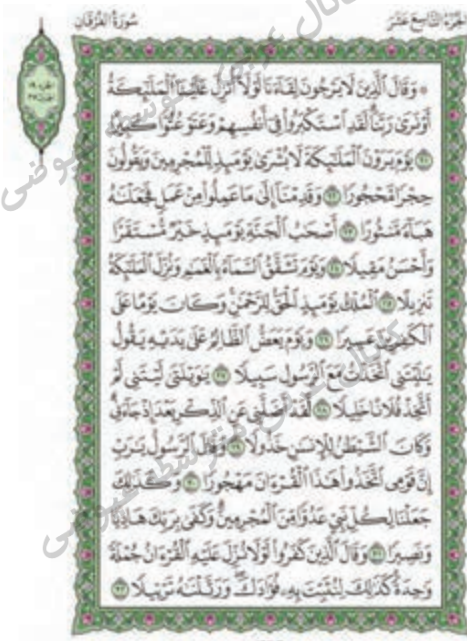 الجزء التاسع عشر
سورة الفرقان
۞ وَقَالَ ٱلَّذِينَ لَا يَرْجُونَ لِقَآءَنَا لَوْلَآ أُنزِلَ عَلَيْنَا ٱلْمَلَٰٓئِكَةُ
أَوْ نَرَىٰ رَبَّنَا لَقَدِ ٱسْتَكْبَرُوا۟ فِىٓ أَنفُسِهِمْ وَعَتَوْ عُتُوًّا كَبِيرًا
٢١ يَوْمَ يَرَوْنَ ٱلْمَلَٰٓئِكَةَ لَا بُشْرَىٰ يَوْمَئِذٍ لِّلْمُجْرِمِينَ وَيَقُولُونَ
حِجْرًا مَّحْجُورًا ٢٢ وَقَدِمْنَآ إِلَىٰ مَا عَمِلُوا۟ مِنْ عَمَلٍ فَجَعَلْنَٰهُ
هَبَآءً مَّنثُورًا ٢٣ أَصْحَٰبُ ٱلْجَنَّةِ يَوْمَئِذٍ خَيْرٌ مُّسْتَقَرًّا
وَأَحْسَنُ مَقِيلًا ٢٤ وَيَوْمَ تَشَقَّقُ ٱلسَّمَآءُ بِٱلْغَمَٰمِ وَنُزِّلَ ٱلْمَلَٰٓئِكَةُ
تَنزِيلًا ٢٥ ٱلْمُلْكُ يَوْمَئِذٍ ٱلْحَقُّ لِلرَّحْمَٰنِ وَكَانَ يَوْمًا عَلَى
ٱلْكَٰفِرِينَ عَسِيرًا ٢٦ وَيَوْمَ يَعَضُّ ٱلظَّالِمُ عَلَىٰ يَدَيْهِ يَقُولُ
يَٰلَيْتَنِى ٱتَّخَذْتُ مَعَ ٱلرَّسُولِ سَبِيلًا ٢٧ يَٰوَيْلَتَىٰ لَيْتَنِى لَمْ
أَتَّخِذْ فُلَانًا خَلِيلًا ٢٨ لَّقَدْ أَضَلَّنِى عَنِ ٱلذِّكْرِ بَعْدَ إِذْ جَآءَنِى
وَكَانَ ٱلشَّيْطَٰنُ لِلْإِنسَٰنِ خَذُولًا ٢٩ وَقَالَ ٱلرَّسُولُ يَٰرَبِّ
إِنَّ قَوْمِى ٱتَّخَذُوا۟ هَٰذَا ٱلْقُرْءَانَ مَهْجُورًا ٣٠ وَكَذَٰلِكَ
جَعَلْنَا لِكُلِّ نَبِىٍّ عَدُوًّا مِّنَ ٱلْمُجْرِمِينَ وَكَفَىٰ بِرَبِّكَ هَادِيًا
وَنَصِيرًا ٣١ وَقَالَ ٱلَّذِينَ كَفَرُوا۟ لَوْلَا نُزِّلَ عَلَيْهِ ٱلْقُرْءَانُ جُمْلَةً
وَٰحِدَةً كَذَٰلِكَ لِنُثَبِّتَ بِهِۦ فُؤَادَكَ وَرَتَّلْنَٰهُ تَرْتِيلًا ٣٢